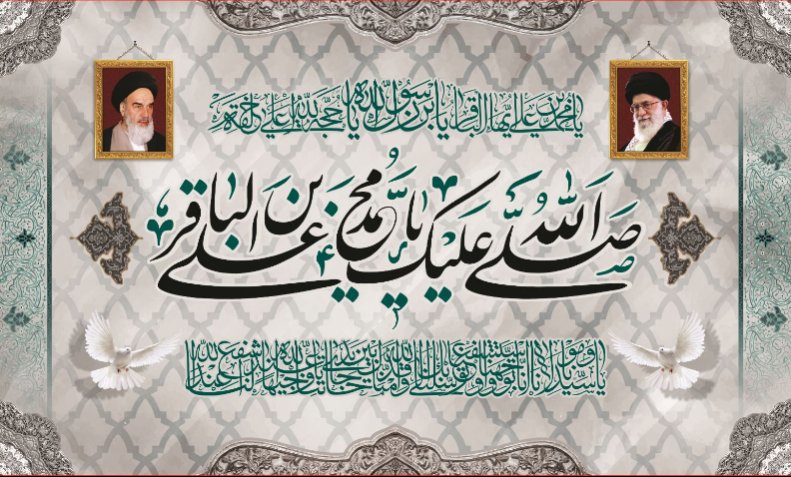 یا محمد بن علی ایها الباقر یا بن رسول الله یا حجة الله علی خلقه
صلی الله علیک یا محمد بن علی الباقر
یا سیدنا و مولانا انا توجهنا و استشفعنا و توسلنا بک الی الله و قدمناک بین یدی حاجاتنا یا وجیها عند الله اشفع لنا عند الله